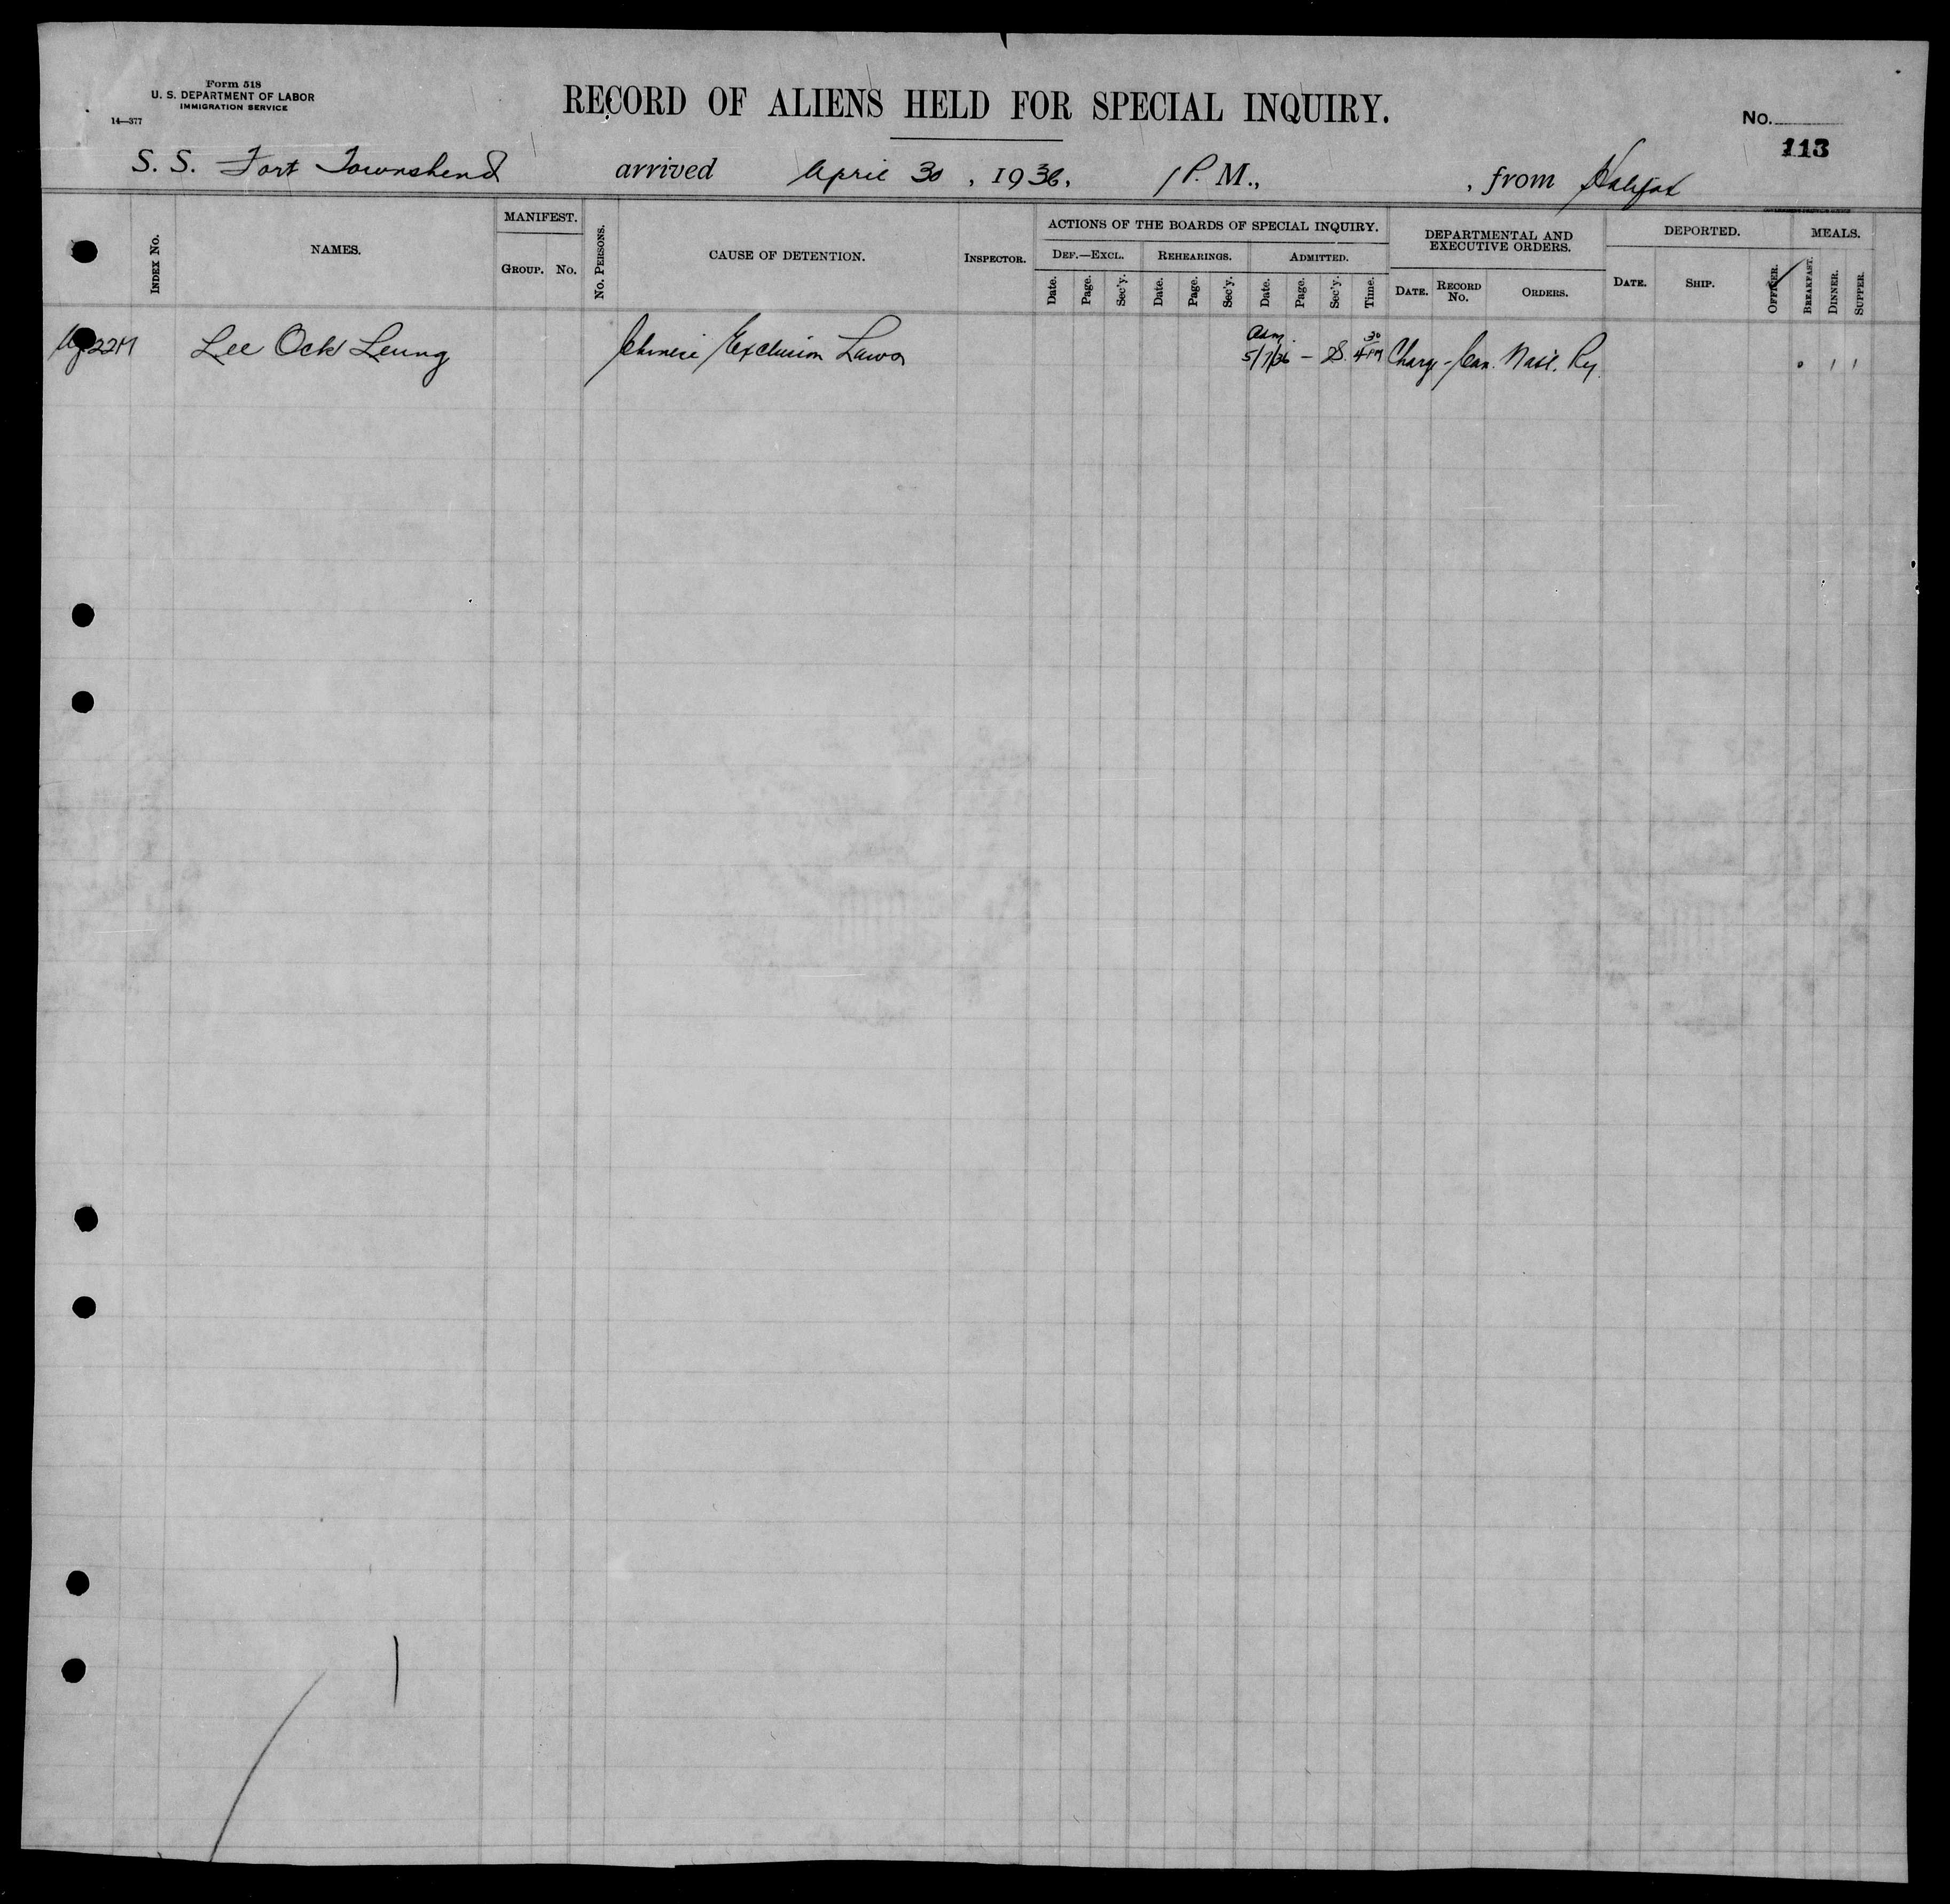 Form 518
U. S. DEPARTMENT OF LABOR
IMMIGRATION SERVICE
14—377
RECORD OF ALIENS HELD FOR SPECIAL INQUIRY.
No.
113
S. S. Fort Townshend arrived April 30, 1936, 1 P. M., , from Halifax
INDEX No.
NAMES.
MANIFEST.
GROUP. No.
No. PERSONS.
CAUSE OF DETENTION.
INSPECTOR.
ACTIONS OF THE BOARDS OF SPECIAL INQUIRY.
DEF.—EXCL. REHEARINGS. ADMITTED.
Date. Page. Sec'y. Date. Page. Sec'y. Date. Page. Sec'y. Time.
DEPARTMENTAL AND
EXECUTIVE ORDERS.
DATE. RECORD No. ORDERS.
DEPORTED.
DATE. SHIP. OFFICER.
MEALS.
BREAKFAST. DINNER. SUPPER.
22M Lee Ock Leung Chinese Exclusion Laws Adm. 5/7/36 — 4 30 PM Charge - Can. Nat'l. Ry.